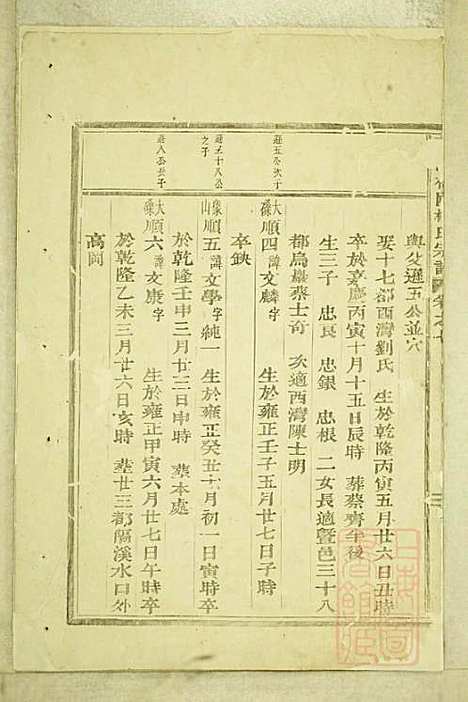 與父遜五公並穴
娶十七都西灣劉氏 生於乾隆丙寅五月廿六日丑時
卒於嘉慶丙寅十月十五日辰時 葬蔡齊垄後
生三子 忠良 忠銀 忠根 二女長適暨邑三十八
都烏巖蔡士奇 次適西灣陳士明
遜五公次子
大順四 諱文麟字 生於雍正壬子五月廿七日子時
卒缺
遜五十八公之子
山順五 諱文學字純一 生於雍正癸丑十月初一日寅時卒
於乾隆壬申三月廿三日申時 葬本處
大順六 諱文康字 生於雍正甲寅六月廿七日午時卒
於乾隆乙未三月廿六日亥時 葬廿三都隔溪水口外
高岡